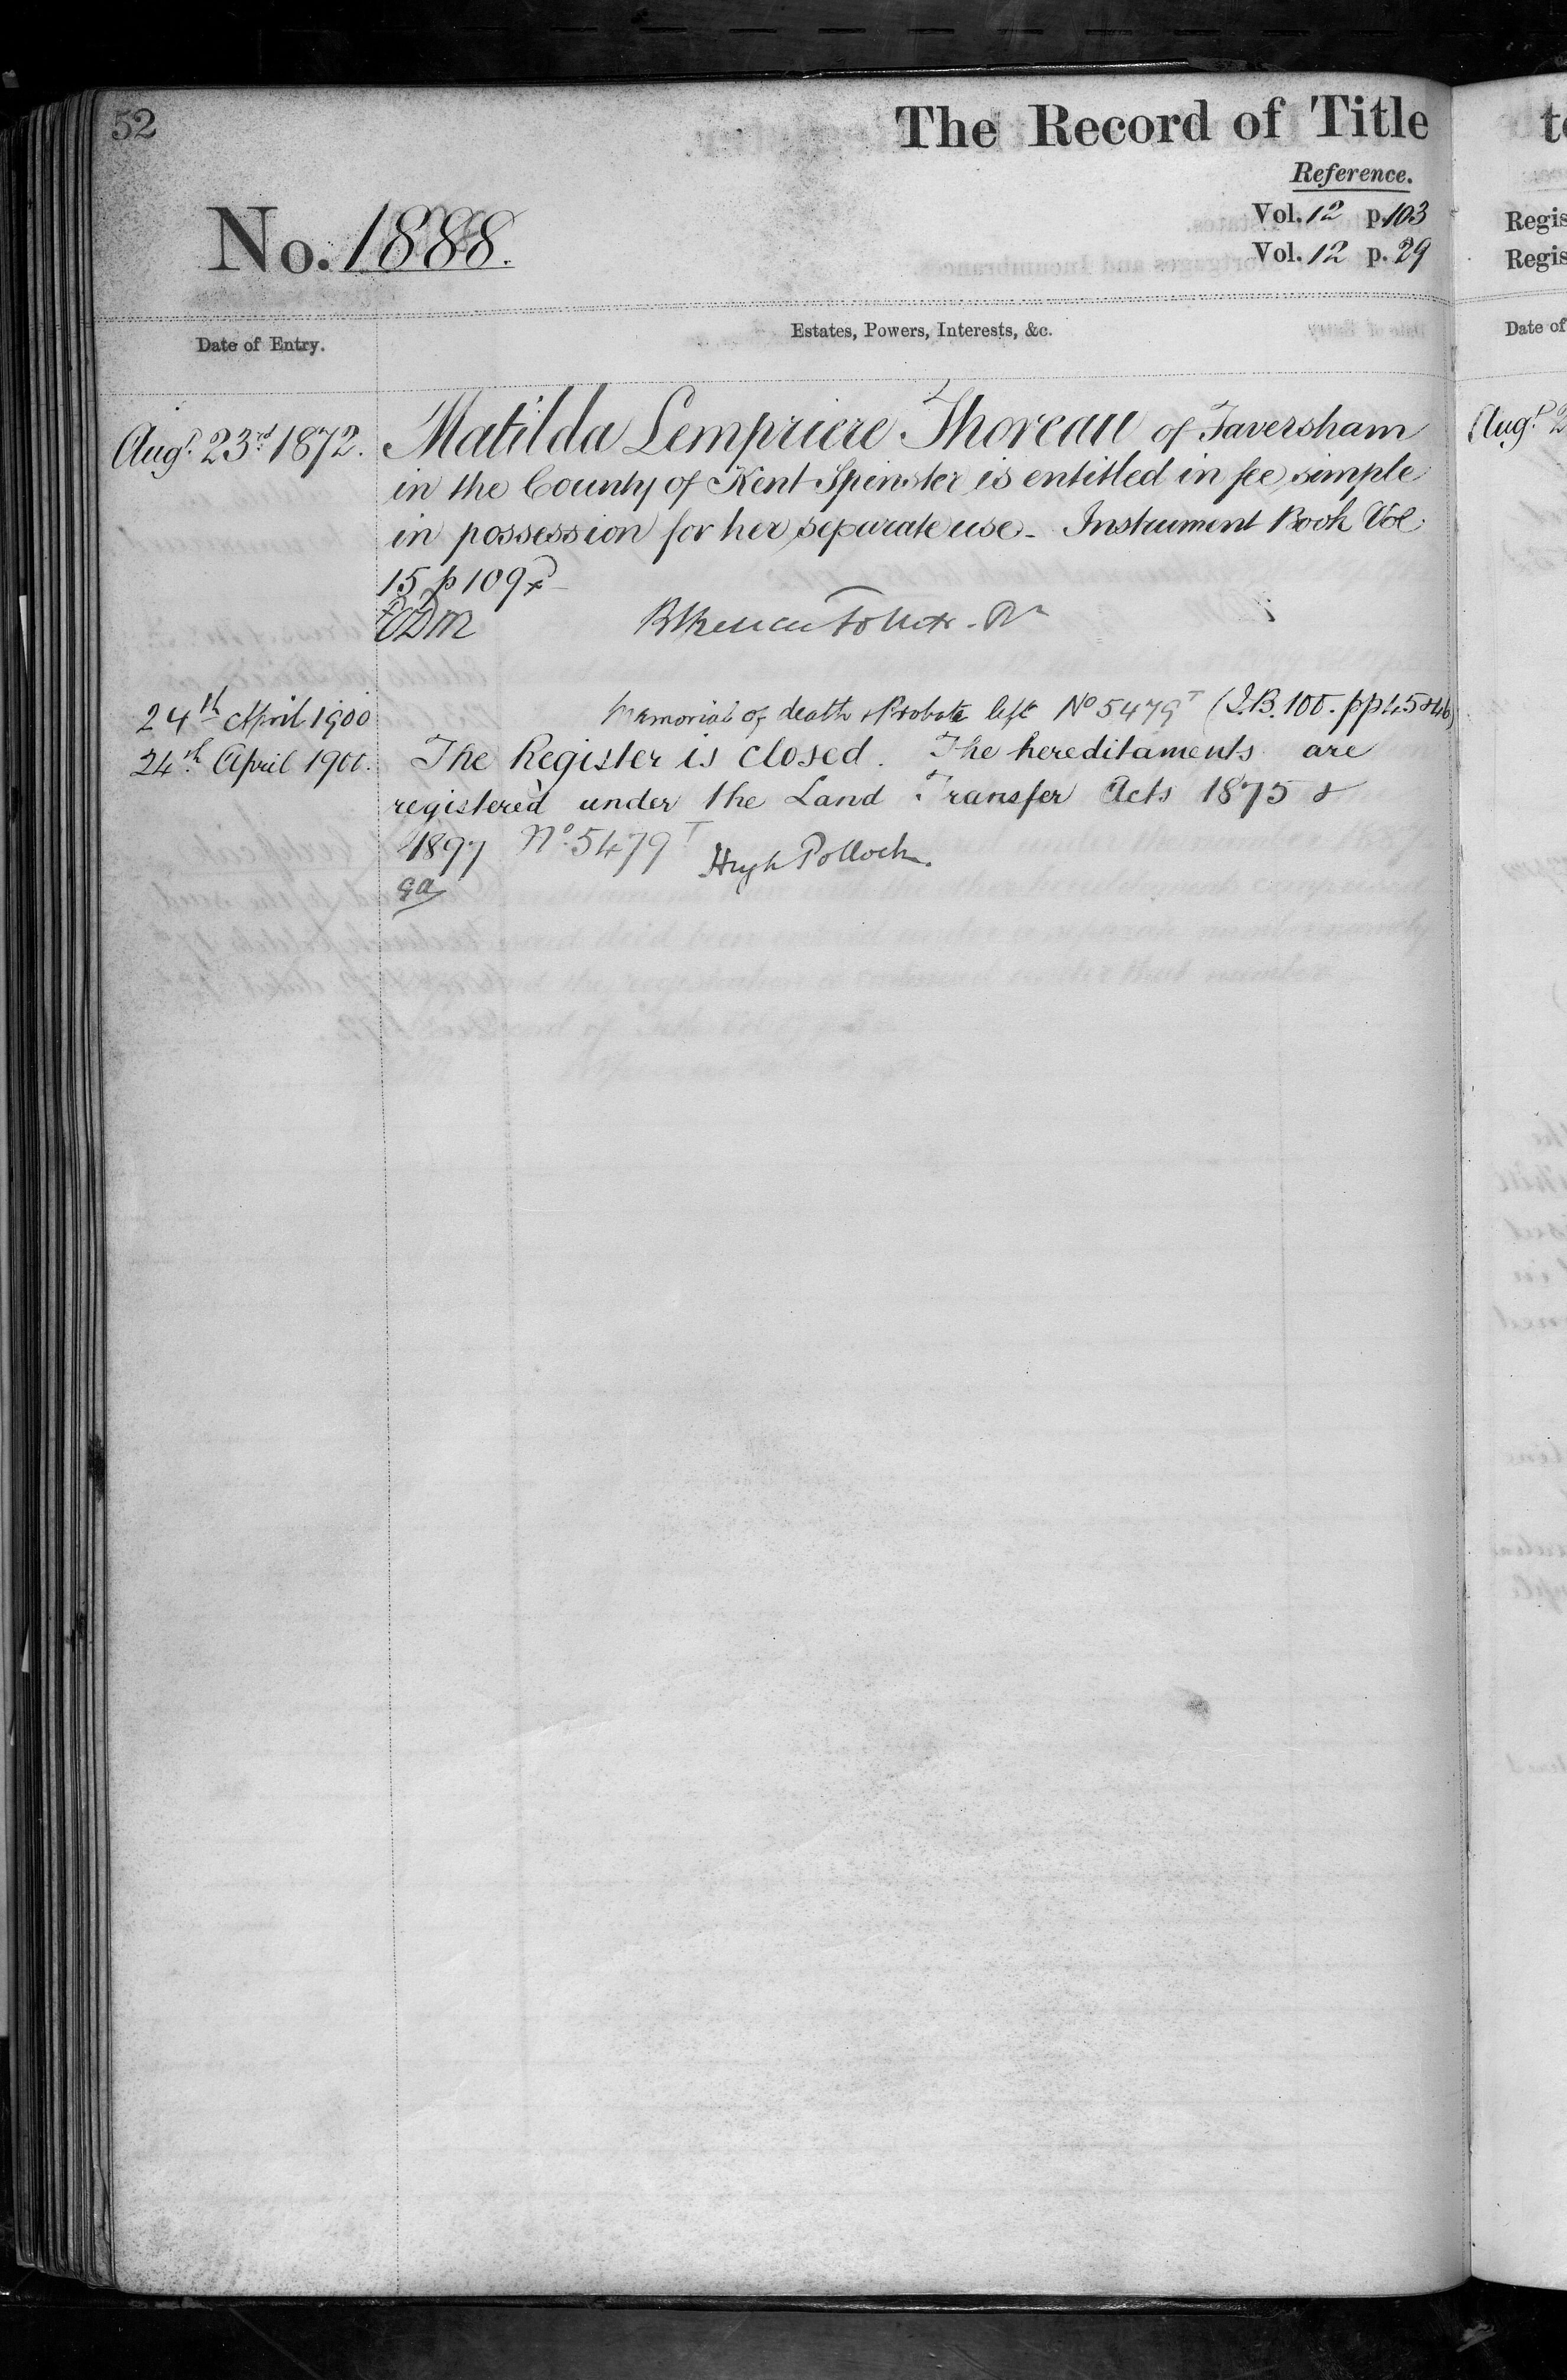 52
The Record of Title
Reference.
No. 1888.
Vol. 12 p. 103
Vol. 12 p. 29
Date of Entry.
Estates, Powers, Interests, &c.
Augt. 23rd 1872.
Matilda Lempriere Thoreau of Faversham
in the County of Kent Spinster is entitled in fee simple
in possession for her separate use - Instrument Book Vol
15 p 109
24th April 1900
Memorial of death & Probate left No 5479T (I.B. 100. pp 45 & 46)
24th April 1900.
The Register is closed. The hereditaments are
registered under the Land Transfer Acts 1875 &
1897 No. 5479T Hugh Pollock.
Regis
Regis
Date of
Augt. 2